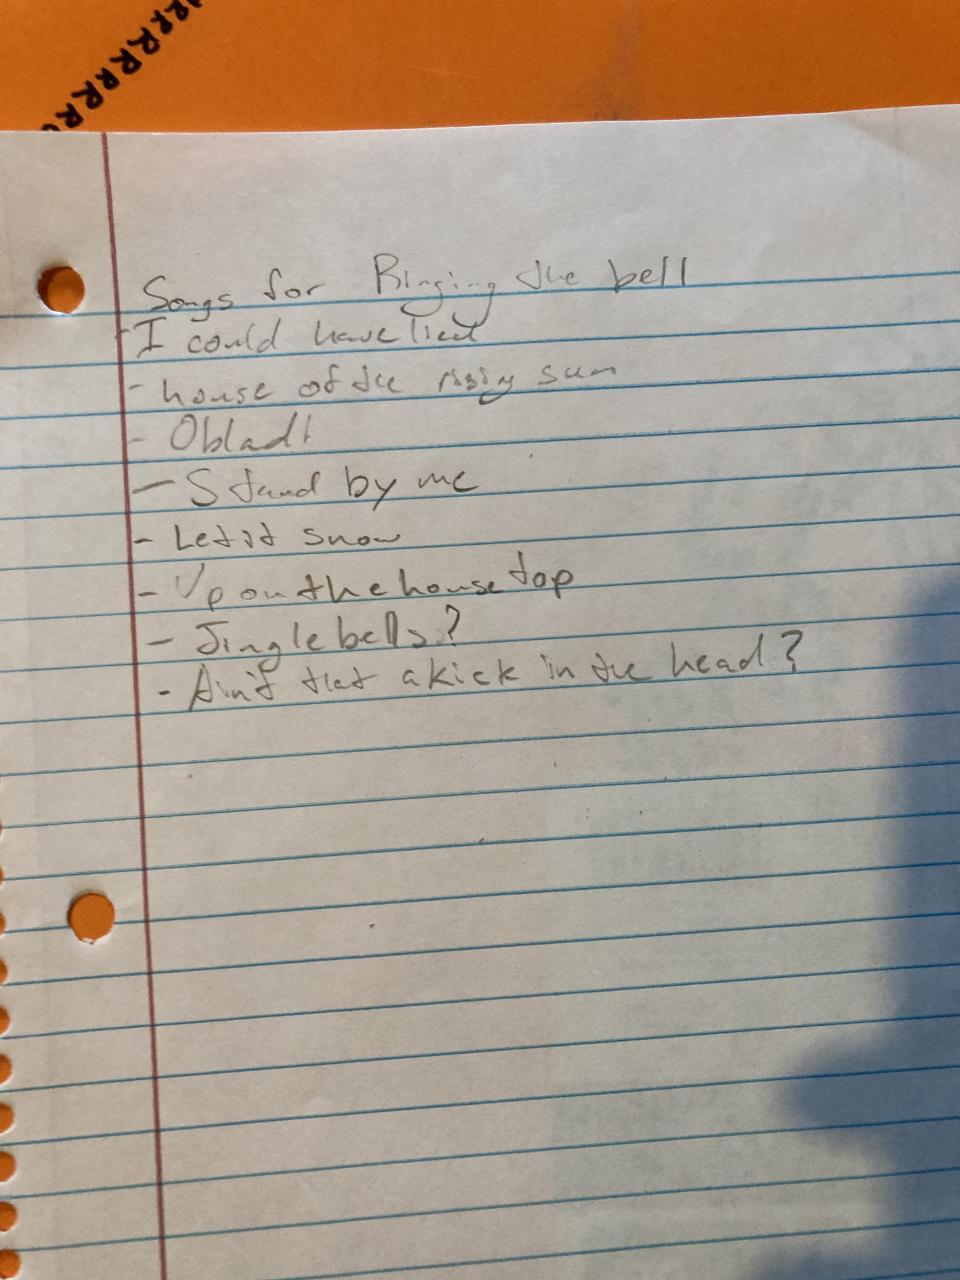 RRRRRR
Songs for Ringing the bell
- I could have lied
- house of the rising sun
- Obladi
- Stand by me
- Let it snow
- Up on the house top
- Jingle bells?
- Ain't that a kick in the head?